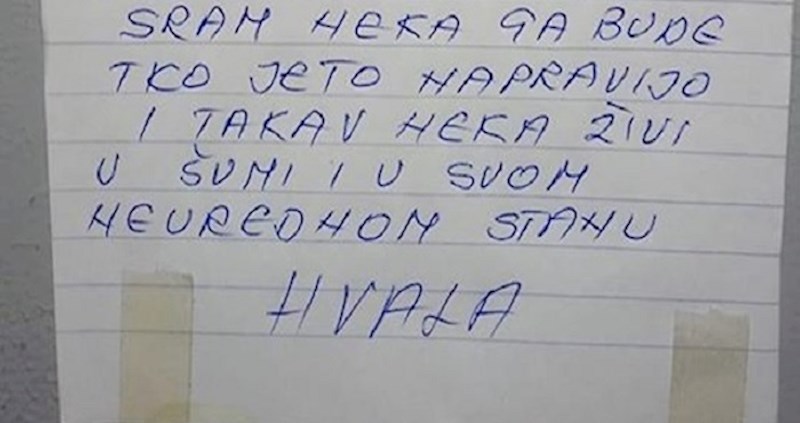 SRAM NEKA GA BUDE
TKO JETO NAPRAVIJO
I TAKAV NEKA ŽIVI
U ŠUMI I U SVOM
NEUREDNOM STANU
HVALA